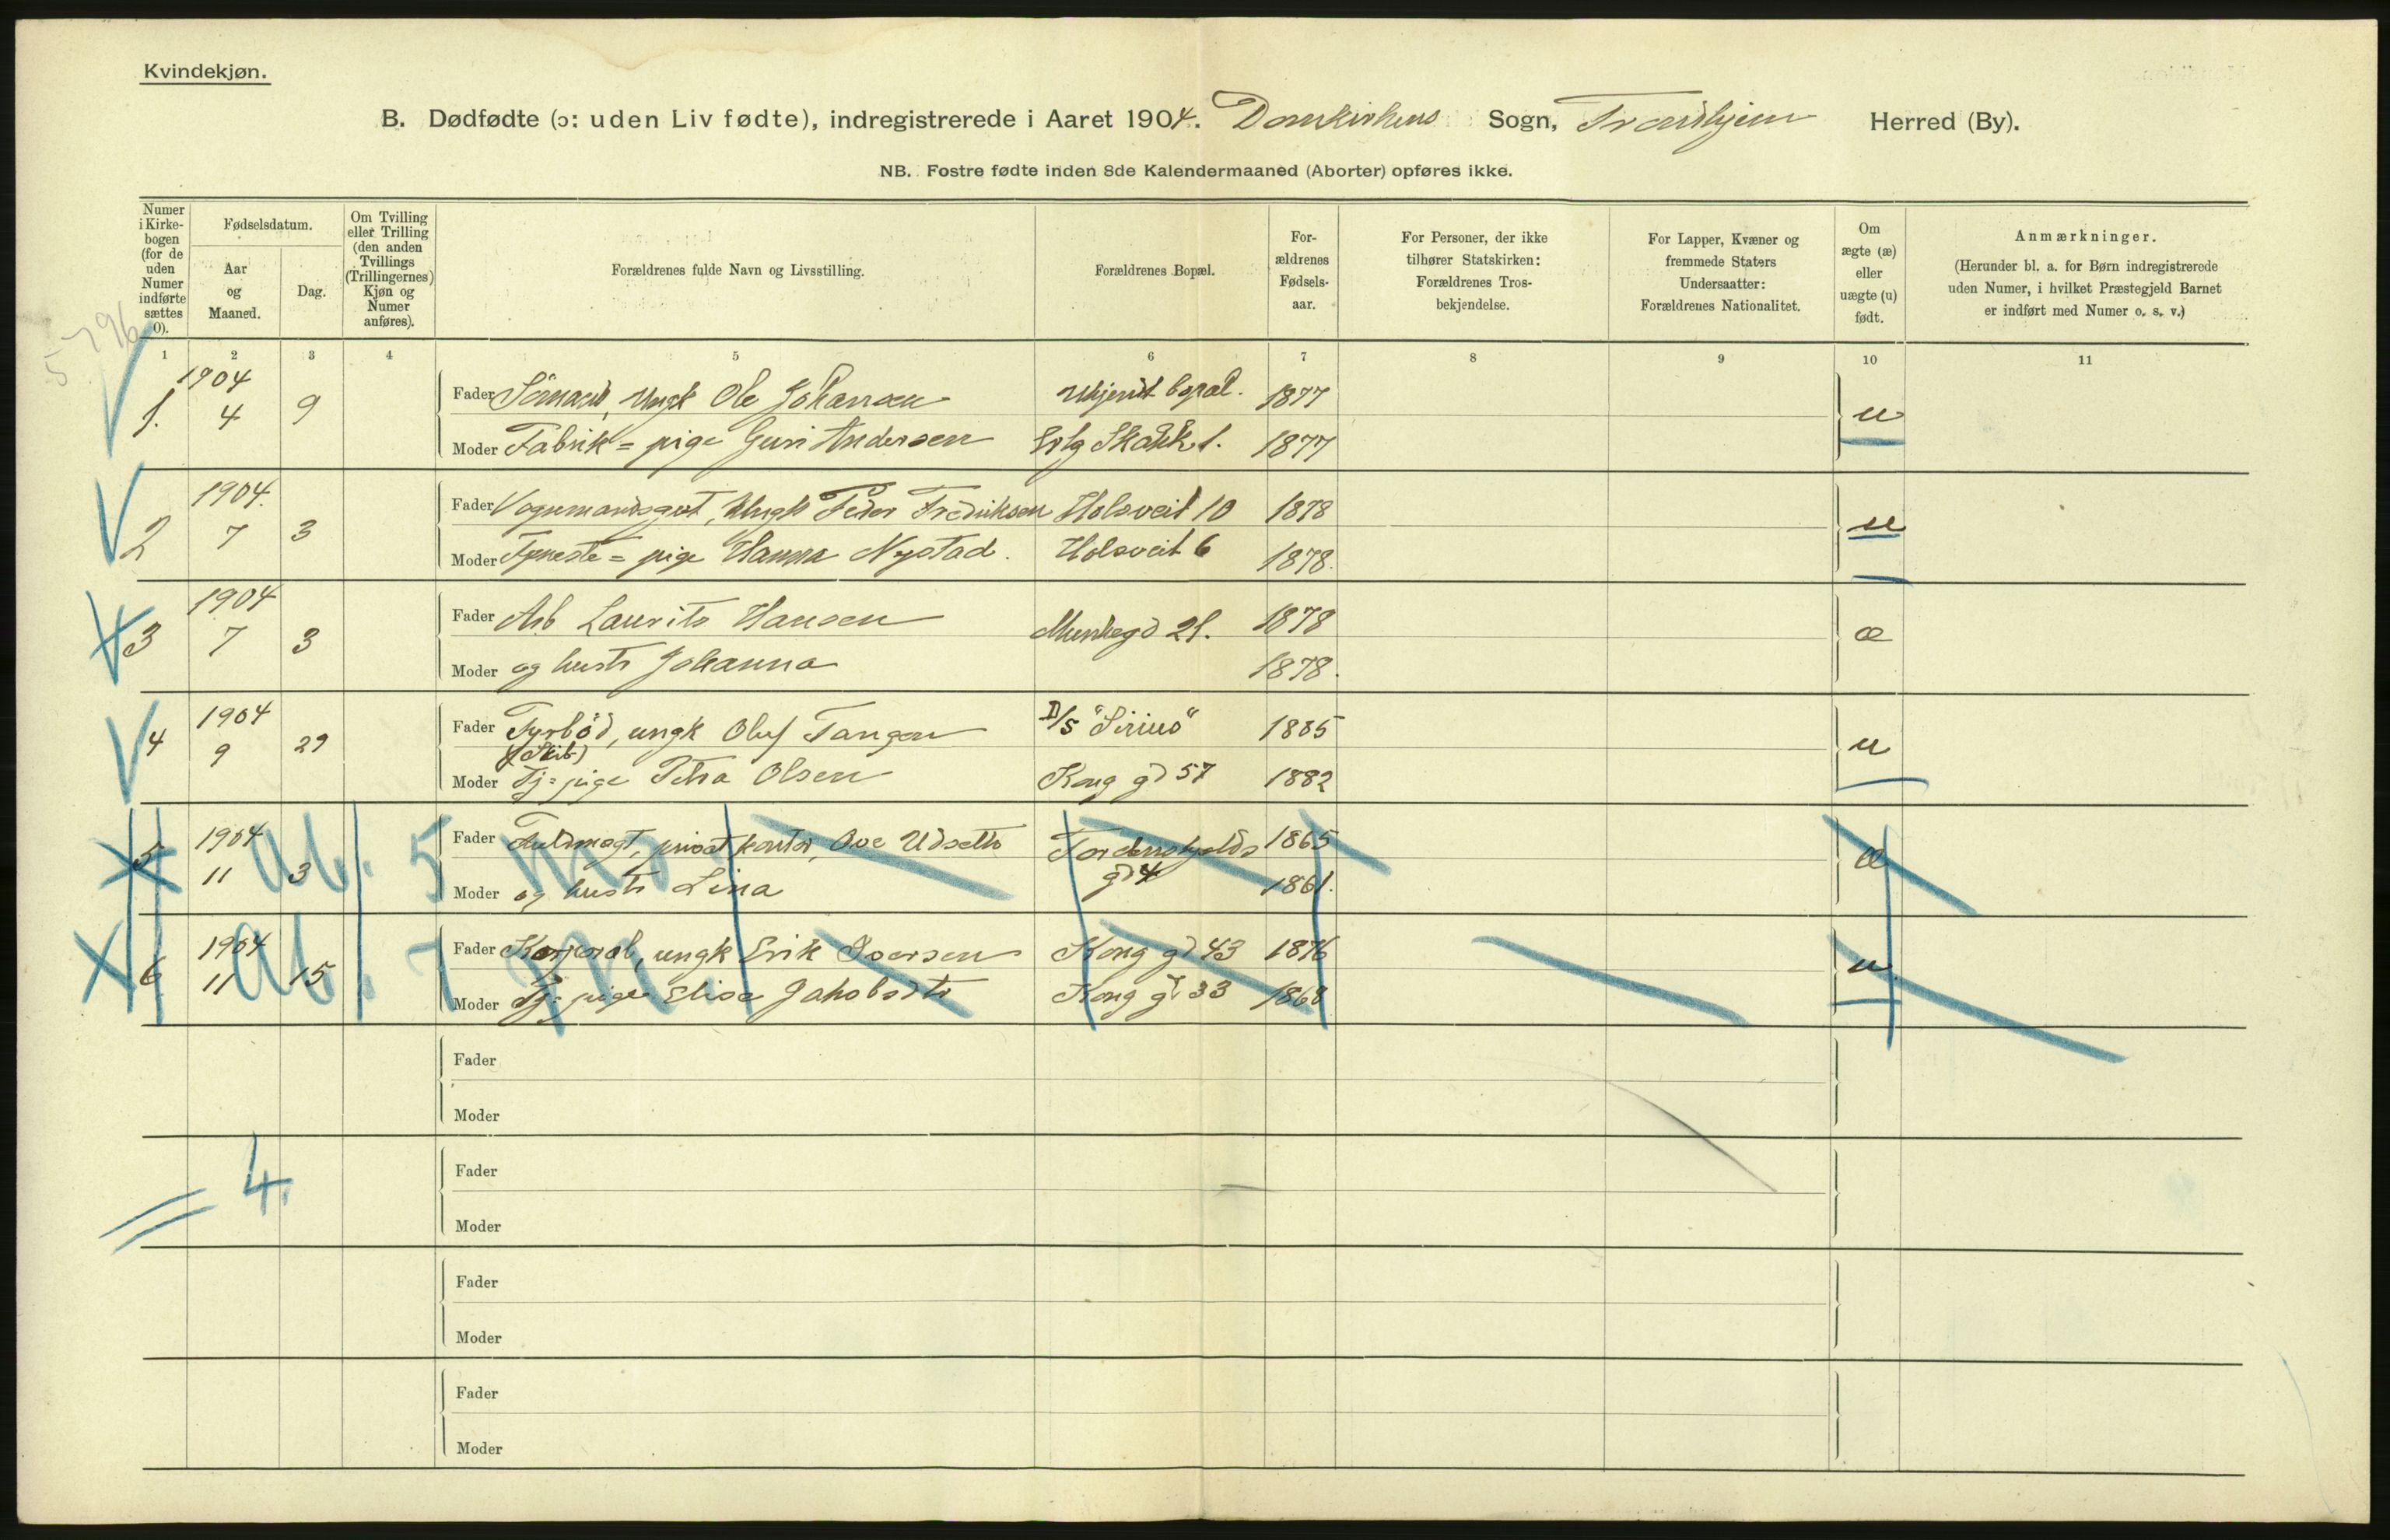 Kvindekjøn.
B. Dødfødte (ɔ: uden Liv fødte), indregistrerede i Aaret 1904. Domkirkens Sogn, Trondhjem Herred (By).
NB. Fostre fødte inden 8de Kalendermaaned (Aborter) opføres ikke.
Numer i Kirke-bogen (for de uden Numer indførte sættes 0).
Fødselsdatum.
Aar og Maaned.
Dag.
Om Tvilling eller Trilling (den anden Tvillings (Trillingernes) Kjøn og Numer anføres).
Forældrenes fulde Navn og Livsstilling.
Forældrenes Bopæl.
For-ældrenes Fødsels-aar.
For Personer, der ikke tilhører Statskirken: Forældrenes Tros-bekjendelse.
For Lapper, Kvæner og fremmede Staters Undersaatter: Forældrenes Nationalitet.
Om ægte (æ) eller uægte (u) født.
Anmærkninger.
(Herunder bl. a. for Børn indregistrerede uden Numer, i hvilket Præstegjeld Barnet er indført med Numer o. s. v.)
1 2 3 4 5 6 7 8 9 10 11
1. 1904 4 9 Fader Sömand, Ungk Ole Johansen Ukjendt bopæl. 1877 u
Moder Fabrik=pige Guri Andersen 1877
2 1904. 7 3 Fader Vognmandsgut, Ungk Peder Fredriksen Holsveit 10 1878 u
Moder Tjeneste=pige Hanna Nystad. Holsveit 6 1878.
3 1904 7 3 Fader Arb Laurits Hansen Munkegd 21. 1878 æ
Moder og hustr Johanna 1878.
4 1904 9 29 Fader Fyrbød, ungk Oluf Tangen D/S "Sirius" 1885 u
(Skib)
Moder Tj=pige Petra Olsen Kong gd 57 1882
5 1904 11 3 Fader Fuldmægt, privat kontor, Ove Udseth Tordenskjolds 1865 æ
gd 4
Moder og hustr Lina 1861.
ab. 5 m.
6 1904 11 15 Fader Korporal, ungk Erik Iversen Kong gd 43 1876 u
Moder Tj=pige Elise Jakobsdtr Kong gd 33 1868
ab. 7 m.
Fader
Moder
= 4.
Fader
Moder
Fader
Moder
Fader
Moder